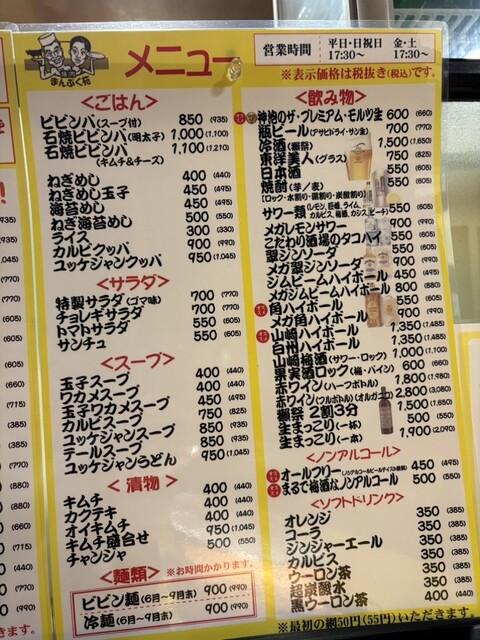 まんぷく苑
メニュー
営業時間
平日・日祝日 17:30〜
金・土 17:30〜
※表示価格は税抜き(税込)です。
<ごはん>
ビビンバ(スープ付) 850 (935)
石焼ビビンバ(明太子) 1,000 (1,100)
石焼ビビンバ(キムチ&チーズ) 1,100 (1,210)
ねぎめし 400 (440)
ねぎめし玉子 450 (495)
海苔めし 450 (495)
ねぎ海苔めし 500 (550)
ライス 300 (330)
カルビクッパ 900 (990)
ユッケジャンクッパ 950 (1,045)
<サラダ>
特製サラダ(ゴマ味) 700 (770)
チョレギサラダ 700 (770)
トマトサラダ 550 (605)
サンチュ 550 (605)
<スープ>
玉子スープ 400 (440)
ワカメスープ 400 (440)
玉子ワカメスープ 450 (495)
カルビスープ 750 (825)
ユッケジャンスープ 850 (935)
テールスープ 850 (935)
ユッケジャンうどん 950 (1,045)
<漬物>
キムチ 400 (440)
カクテキ 400 (440)
オイキムチ 400 (440)
キムチ盛合せ 950 (1,045)
チャンジャ 500 (550)
<麺類> ※お時間かかります。
ビビン麺(6月〜9月末) 900 (990)
冷麺(6月〜9月末) 900 (990)
<飲み物>
神泡のザ・プレミアム・モルツ生 600 (660)
瓶ビール(アサヒドライ・サン生) 700 (770)
冷酒(獺祭) 1,500 (1,650)
東洋美人(グラス) 750 (825)
日本酒 550 (605)
焼酎(芋/麦) 550 (605)
[ロック・水割り・湯割り・炭酸割り]
サワー類(レモン、巨峰、ライム、カルピス、梅酒、カシス、ピーチ) 550 (605)
メガレモンサワー 900 (990)
こだわり酒場のタコハイ 550 (605)
翠ジンソーダ 550 (605)
メガ翠ジンソーダ 900 (990)
ジムビームハイボール 450 (495)
メガジムビームハイボール 800 (880)
角ハイボール 550 (605)
メガ角ハイボール 900 (990)
山崎ハイボール 1,350 (1,485)
白州ハイボール 1,350 (1,485)
山崎梅酒(サワー・ロック) 1,000 (1,100)
果実酒ロック(梅・パイン) 600 (660)
赤ワイン(ハーフボトル) 1,800 (1,980)
赤ワイン(フルボトル)(オルガニコ) 2,800 (3,080)
獺祭 2割3分 1,500 (1,650)
生まっこり(一杯) 500 (550)
生まっこり(一本) 1,900 (2,090)
<ノンアルコール>
オールフリー(ノンアルコールビールテイスト飲料) 450 (495)
まるで梅酒なノンアルコール 500 (550)
<ソフトドリンク>
オレンジ 350 (385)
コーラ 350 (385)
ジンジャーエール 350 (385)
カルピス 350 (385)
ウーロン茶 350 (385)
超炭酸水 350 (385)
黒ウーロン茶 400 (440)
※最初の網50円(55円)いただきます。